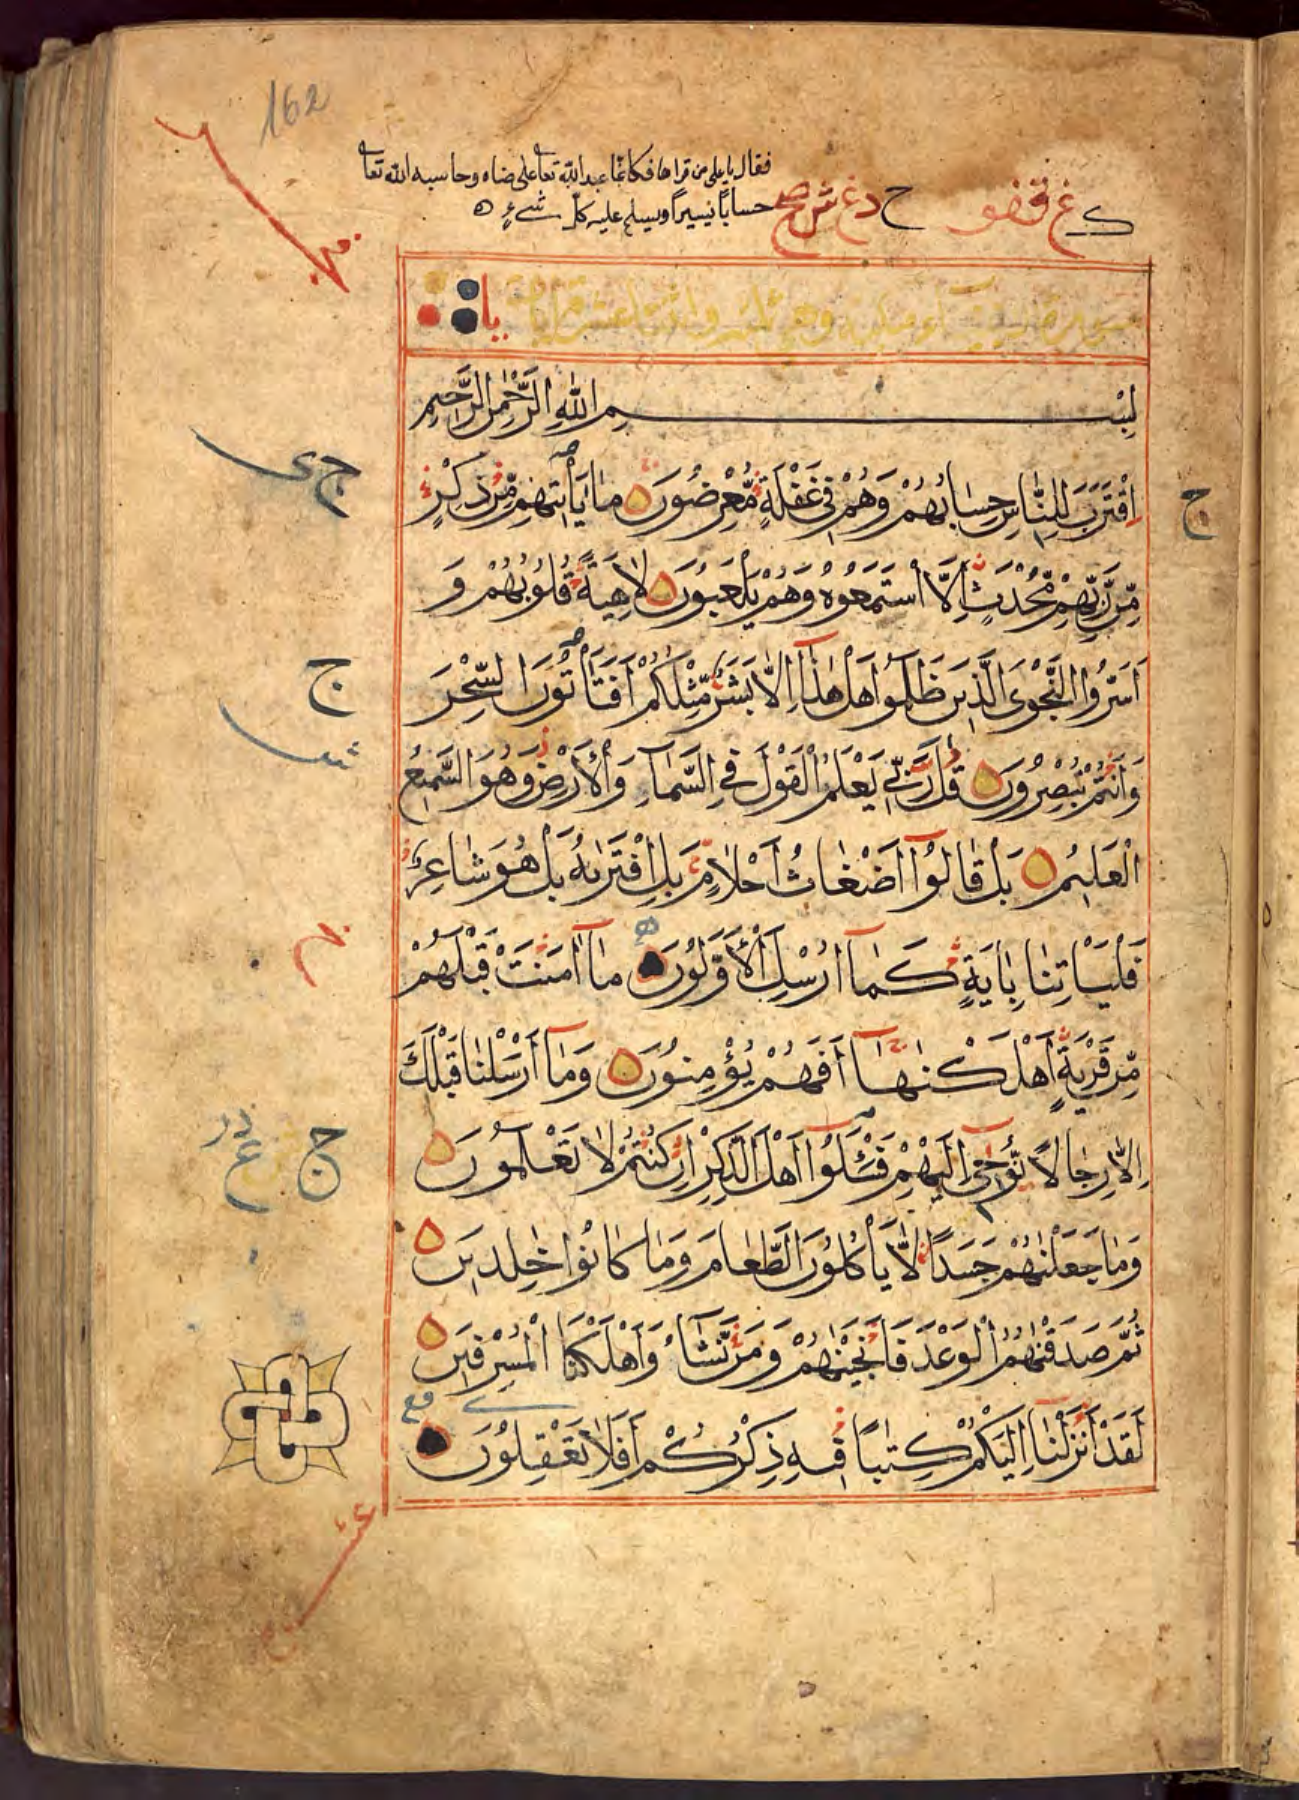 162
فقال يا علي من قراها فكانما عبد الله تعالى على رضاه وحاسبه الله تعالى
حسابا يسيرا ويسلم عليه كل شيء
سورة الانبياء مكية وهي مائة واثنتا عشرة اية
بِسْمِ اللّٰهِ الرَّحْمٰنِ الرَّحِيمِ
اِقْتَرَبَ لِلنَّاسِ حِسَابُهُمْ وَهُمْ فِي غَفْلَةٍ مُّعْرِضُونَ مَا يَأْتِيهِمْ مِّنْ ذِكْرٍ
مِّنْ رَّبِّهِمْ مُّحْدَثٍ اِلَّا اسْتَمَعُوهُ وَهُمْ يَلْعَبُونَ لَاهِيَةً قُلُوبُهُمْ وَ
اَسَرُّوا النَّجْوَى الَّذِينَ ظَلَمُوا هَلْ هٰذَا اِلَّا بَشَرٌ مِّثْلُكُمْ اَفَتَأْتُونَ السِّحْرَ
وَاَنْتُمْ تُبْصِرُونَ قُلْ رَّبِّي يَعْلَمُ الْقَوْلَ فِي السَّمَآءِ وَالْأَرْضِ وَهُوَ السَّمِيعُ
الْعَلِيمُ بَلْ قَالُوا اَضْغَاثُ اَحْلَامٍ بَلِ افْتَرٰىهُ بَلْ هُوَ شَاعِرٌ
فَلْيَأْتِنَا بِاٰيَةٍ كَمَآ اُرْسِلَ الْأَوَّلُونَ مَآ اٰمَنَتْ قَبْلَهُمْ
مِّنْ قَرْيَةٍ اَهْلَكْنٰهَآ اَفَهُمْ يُؤْمِنُونَ وَمَآ اَرْسَلْنَا قَبْلَكَ
اِلَّا رِجَالًا نُّوحِيٓ اِلَيْهِمْ فَسْـَٔلُوٓا اَهْلَ الذِّكْرِ اِنْ كُنْتُمْ لَا تَعْلَمُونَ
وَمَا جَعَلْنٰهُمْ جَسَدًا لَّا يَأْكُلُونَ الطَّعَامَ وَمَا كَانُوا خٰلِدِينَ
ثُمَّ صَدَقْنٰهُمُ الْوَعْدَ فَاَنْجَيْنٰهُمْ وَمَنْ نَّشَآءُ وَاَهْلَكْنَا الْمُسْرِفِينَ
لَقَدْ اَنْزَلْنَآ اِلَيْكُمْ كِتٰبًا فِيهِ ذِكْرُكُمْ اَفَلَا تَعْقِلُونَ